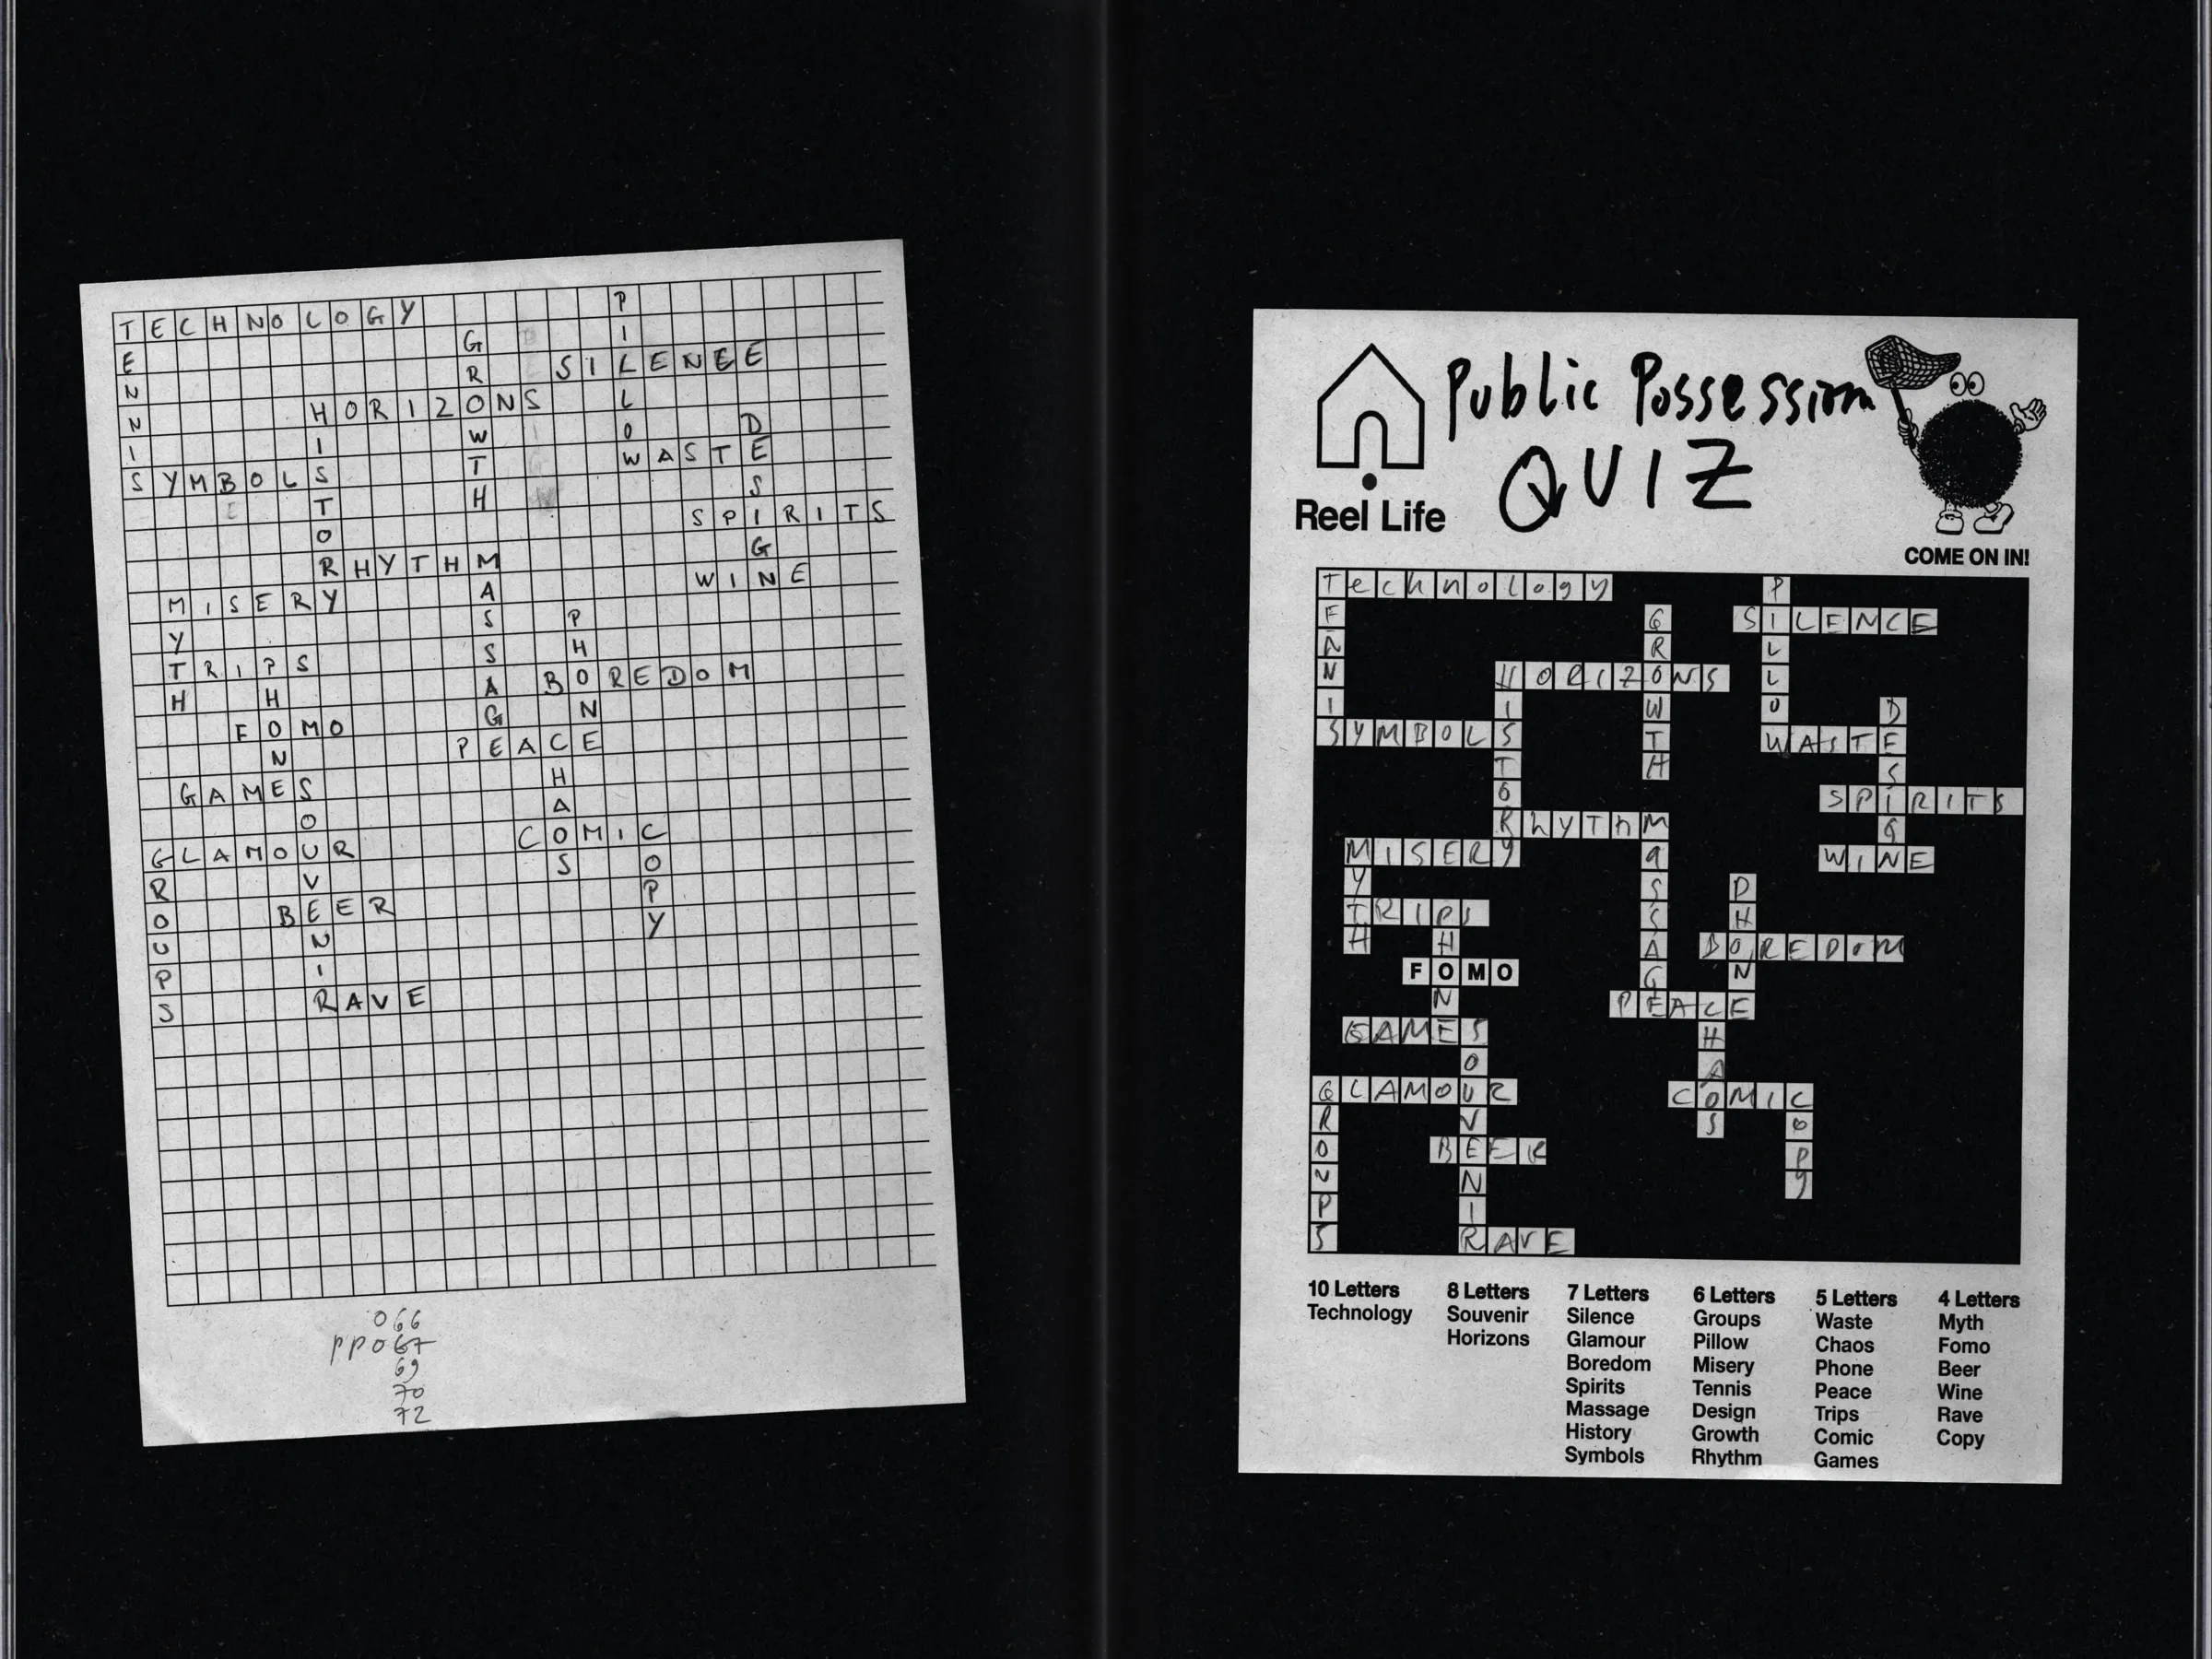 TECHNOLOGY
TENNIS
PILLOW
GROWTH
SILENEE
HORIZONS
HISTORY
DESIGN
WASTE
SYMBOLS
SPIRITS
RHYTHM
MASSAGE
WINE
MISERY
MYTH
PHONE
TRIPS
PHONE
BOREDOM
FOMO
PEACE
CHAOS
GAMES
SOUVENIR
COMIC
COPY
GLAMOUR
GROUPS
BEER
RAVE
066
PP067
69
70
72
Public Possession
QUIZ
Reel Life
COME ON IN!
Technology
TENNIS
PILLOW
GROWTH
SILENCE
HORIZONS
HISTORY
DESIGN
SYMBOLS
WASTE
SPIRITS
RhyThM
MaSSAGE
MISERY
MYTH
WINE
PHONE
TRIPS
PHONE
BOREDOM
FOMO
PEACE
CHAOS
GAMES
SOUVENIR
GLAMOUR
GROUPS
COMIC
COPy
BEER
RAVE
10 Letters
Technology
8 Letters
Souvenir
Horizons
7 Letters
Silence
Glamour
Boredom
Spirits
Massage
History
Symbols
6 Letters
Groups
Pillow
Misery
Tennis
Design
Growth
Rhythm
5 Letters
Waste
Chaos
Phone
Peace
Trips
Comic
Games
4 Letters
Myth
Fomo
Beer
Wine
Rave
Copy